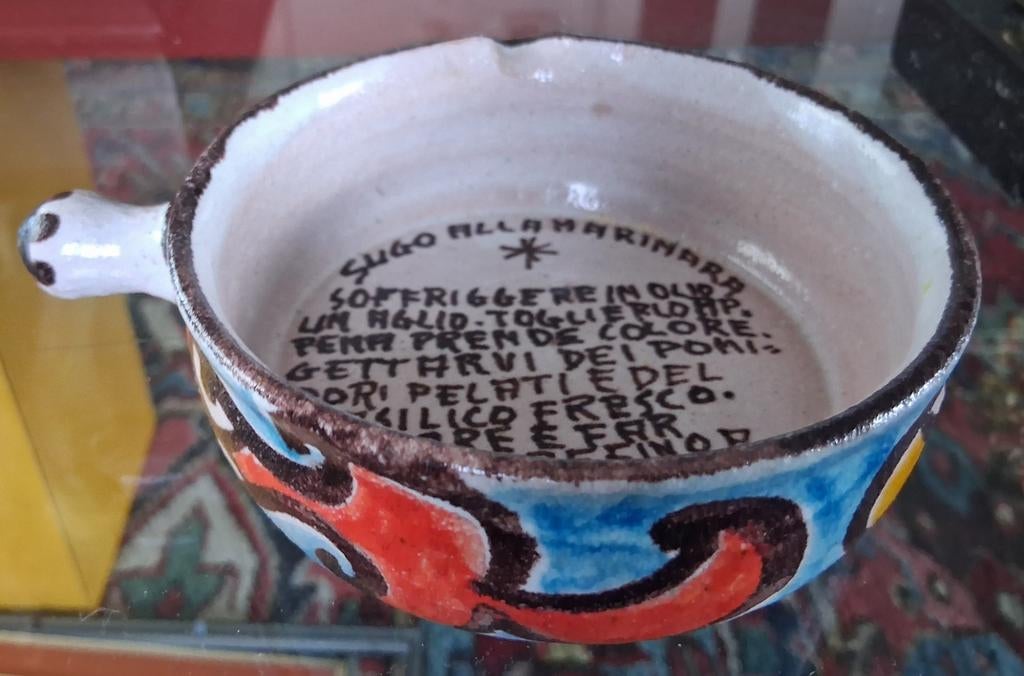 SUGO ALLA MARINARA
*
SOFFRIGGERE IN OLIO
UN AGLIO. TOGLIERLO AP.
PENA PRENDE COLORE.
GETTARVI DEI POMI=
DORI PELATI E DEL
BASILICO FRESCO.
E FAR